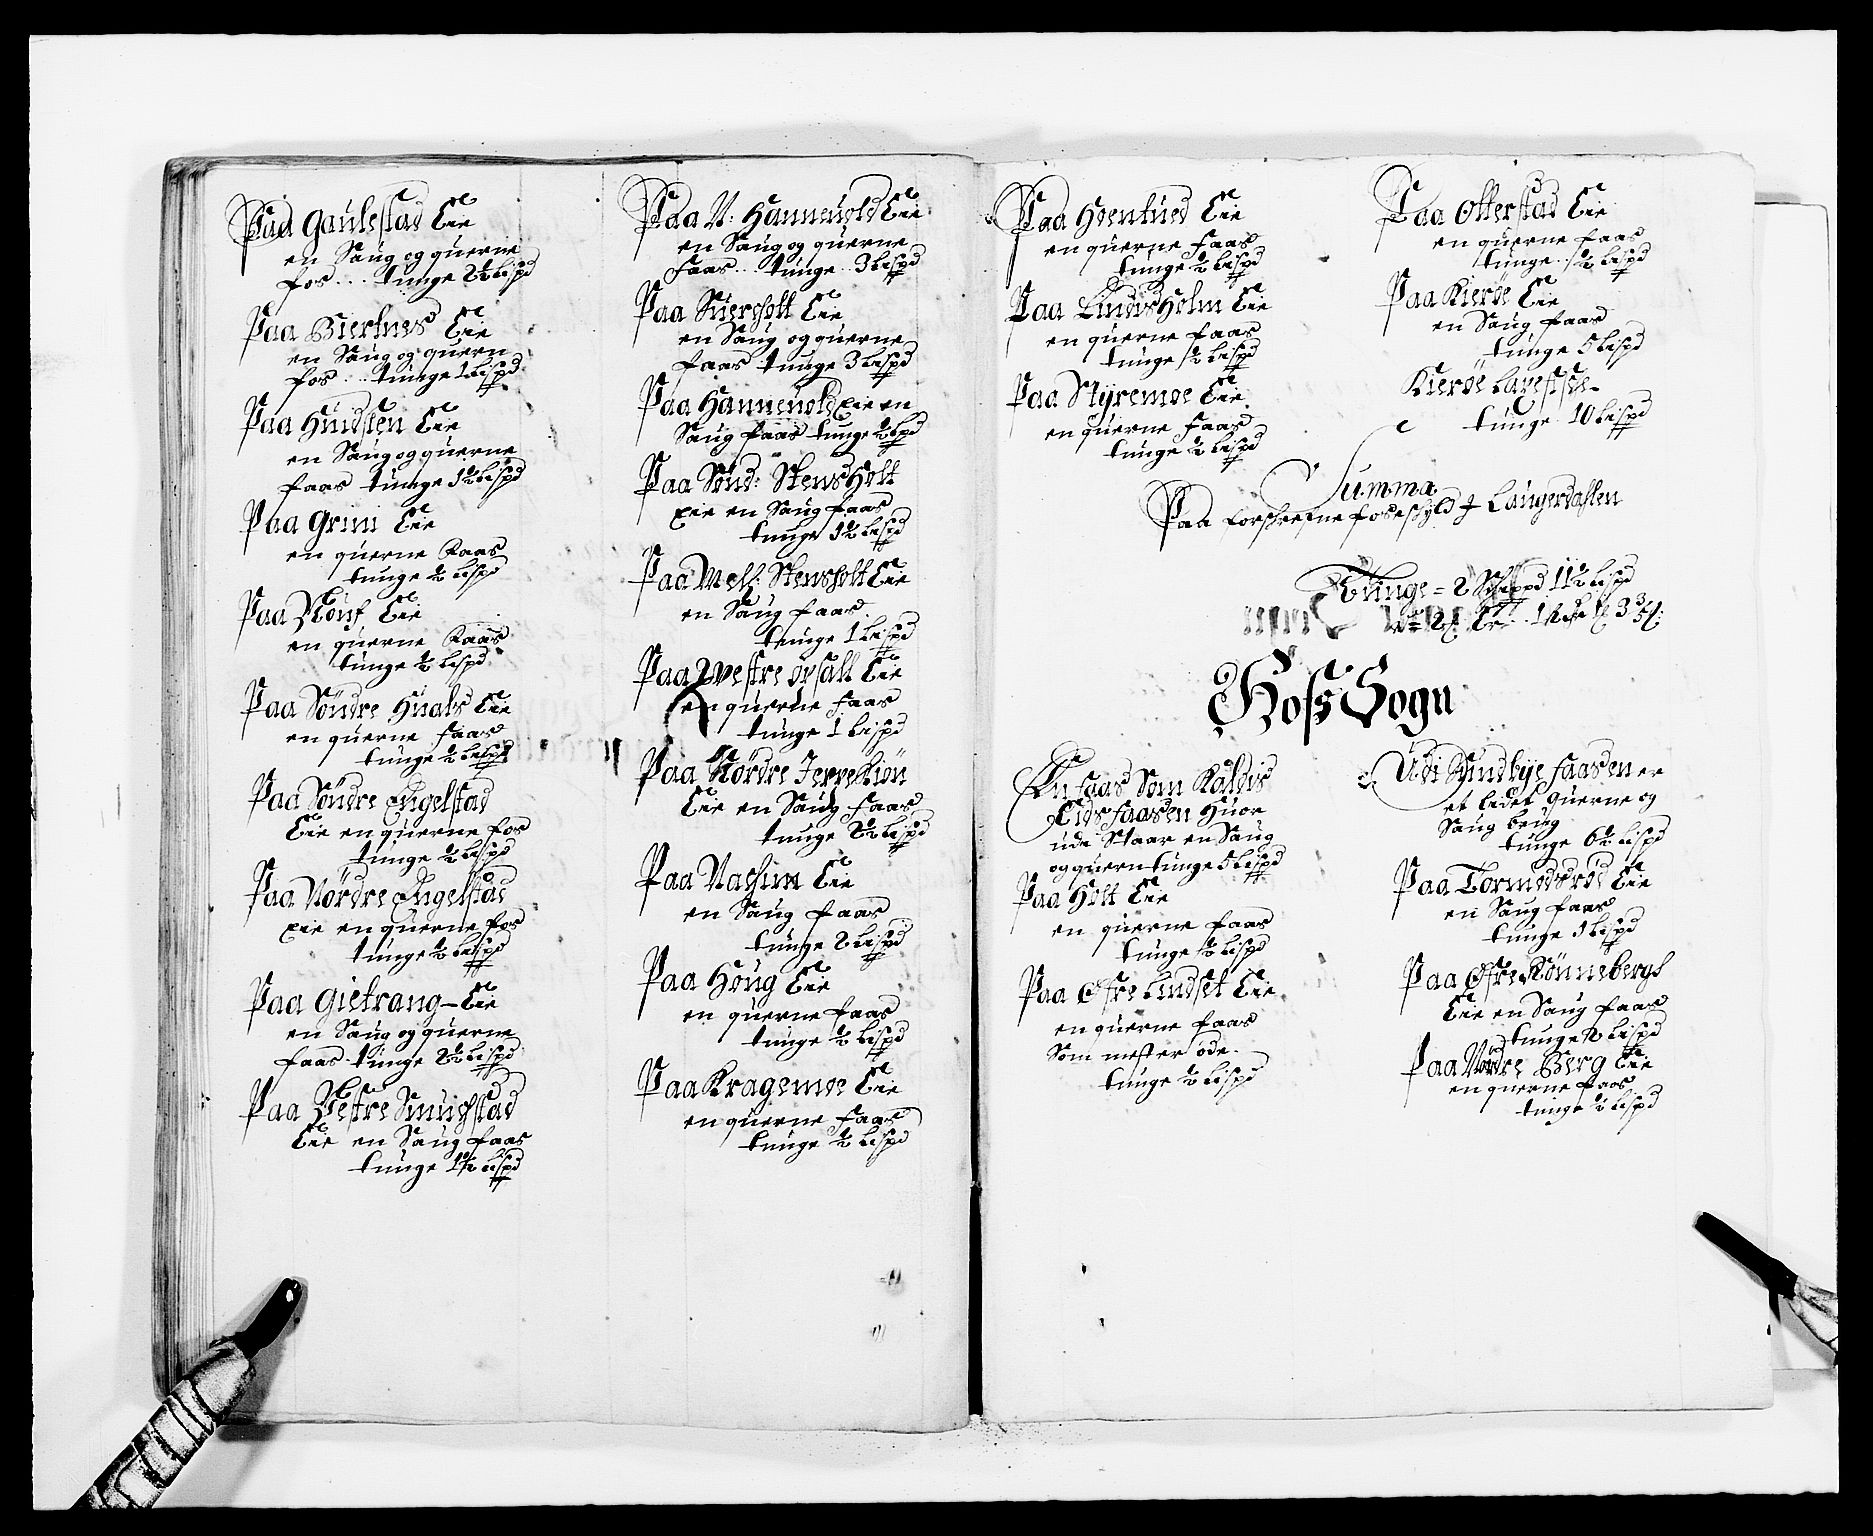 Paa Gaulestad Eie
en Saug og querne
fos.... tunge 2½ Lispd
Paa Biertnes Eie
en Saug og quern
fos... tunge 1 Lispd
Paa Huidsten Eie
en Saug og querne
faas tunge 1½ Lispd
Paa Grini Eie
en querne faas
tunge ½ Lispd
Paa Eie
en querne faas
tunge ½ Lispd
Paa Söndre Hüals Eie
en querne faas
tunge ½ Lispd
Paa Söndre Engelstad
Eie en querne fos
tunge ½ Lispd
Paa Nördre Engelstad
Eie en querne fos
tunge ½ Lispd
Paa Gietrang Eie
en Saug og querne
faas tunge 2½ Lispd
Paa Vestre
Eie en Saug faas
tunge 1½ Lispd
Paa N: Hanneuold Eie
en Saug og querne
faas.. tunge.. 3 Lispd
Paa Suersholt Eie
en Saug og querne
faas tunge 3 Lispd
Paa Hanneuold Eie en
Saug faas tunge ½ Lpd
Paa Sönd: StensHolt
Eie en Saug faas
tunge 1½ Lispd
Paa Mell: Stensholt Eie
en Saug faas
tunge 1 Lispd
Paa Westre opsall Eie
en querne faas
tunge 1 Lispd
Paa Nördre
Eie en Saug faas
tunge 2½ Lispd
Paa Eie
en Saug faas
tunge 2 Lispd
Paa Houg Eie
en querne faas
tunge ½ Lispd
Paa Kragemoe Eie
en querne faas
tunge ½ Lispd
Paa Hoentued Eie
en querne faas
tunge ½ Lispd
Paa LindisHolm Eie
en querne faas
tunge ½ Lispd
Paa Styremoe Eie
en querne faas
tunge ½ Lispd
Paa Otterstad Eie
en querne faas
tunge.. ½ Lispd
Paa Kieröe Eie
en Saug faas
tunge 5 Lispd
Kieröe
tunge 10 Lispd
Summa
Paa forschrefne foseschyld J Laugerdahlen
Tunge = 2 Schippd 11½ Lispd
Hofs Sogn
En faas Som Kaldis
Eids faasen Huor
udi Staar en Saug
og quern tunge 5 Lispd
Paa Holt Eie
en querne faas
tunge ½ Lispd
Paa Öfre Lindset Eie
en querne faas
Som mest er öde.
tunge ½ Lispd
Udi Sundbye faasen er
et ledet querne og
Saug brug
tunge 6½ Lispd
Paa Tormodsröd Eie
en Saug faas
tunge 1 Lispd
Paa Öfre Könnebergh
Eie en Saug faas
tunge 2 Lispd
Paa Nordre Berg Eie
en querne faas
tunge ½ Lispd